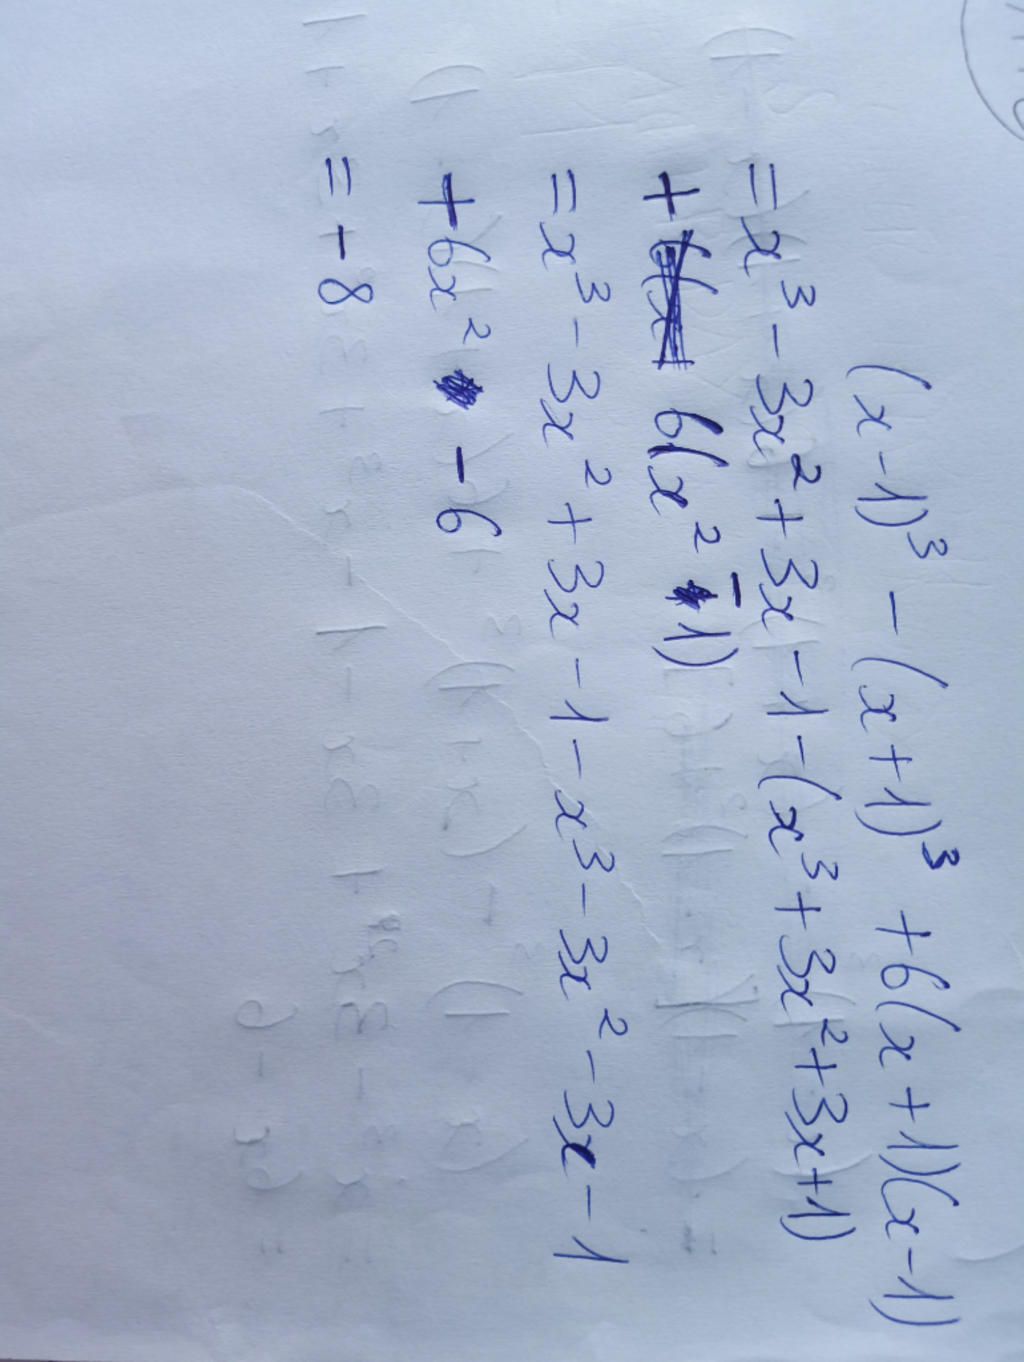 (x-1)³ - (x+1)³ +6(x+1)(x-1)
=x³-3x²+3x-1-(x³+3x²+3x+1)
+ 6(x²-1)
=x³-3x²+3x-1-x³-3x²-3x-1
+6x² -6
=-8